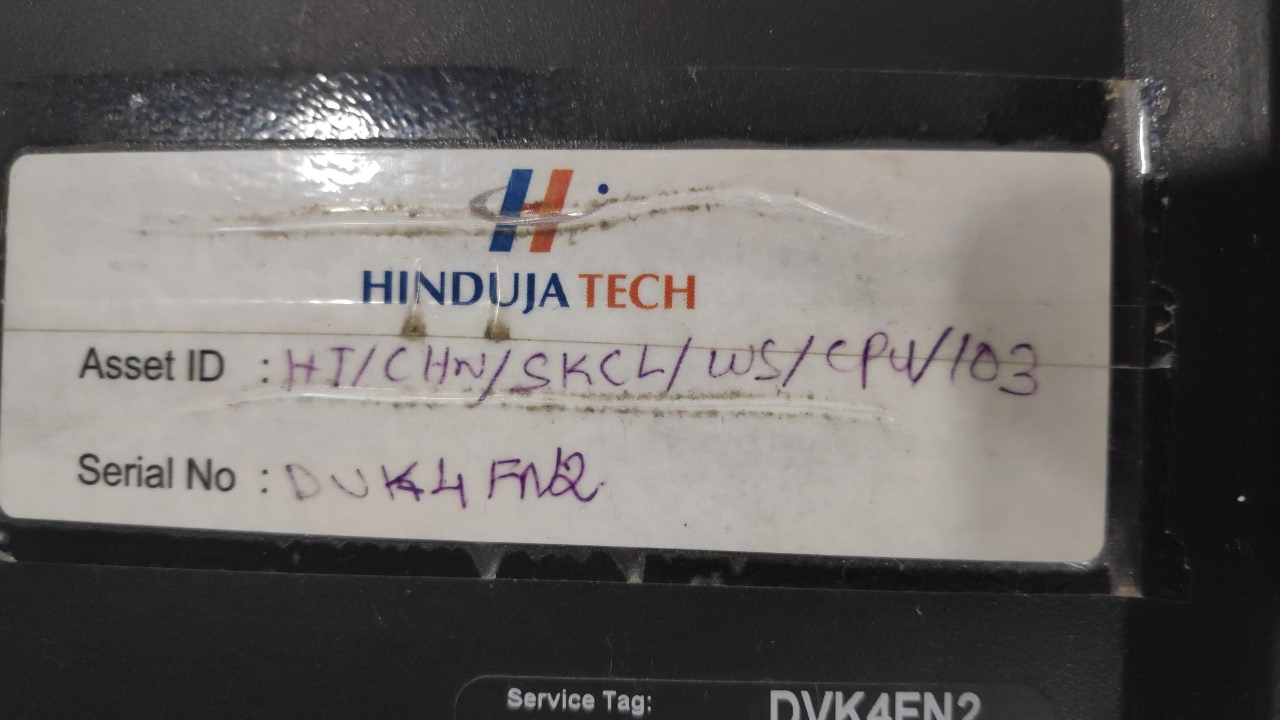 HINDUJA TECH
Asset ID : HT/CHN/SKCL/WS/CPU/103
Serial No : DVK4FN2
Service Tag: DVK4FN2